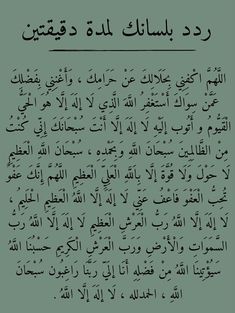 ردد بلسانك لمدة دقيقتين
اللَّهُمَّ اكْفِنِي بِحَلَالِكَ عَنْ حَرَامِكَ ، وَأَغْنِنِي بِفَضْلِكَ
عَمَّنْ سِوَاكَ أَسْتَغْفِرُ اللَّهَ الَّذِي لَا إِلَهَ إِلَّا هُوَ الْحَيُّ
الْقَيُّومُ وَ أَتُوبُ إِلَيْهِ لَا إِلَهَ إِلَّا أَنْتَ سُبْحَانَكَ إِنِّي كُنْتُ
مِنَ الظَّالِمِينَ سُبْحَانَ اللَّهِ وَبِحَمْدِهِ ، سُبْحَانَ اللَّهِ الْعَظِيمِ
لَا حَوْلَ وَلَا قُوَّةَ إِلَّا بِاللَّهِ الْعَلِيِّ الْعَظِيمِ اللَّهُمَّ إِنَّكَ عَفُوٌّ
تُحِبُّ الْعَفْوَ فَاعْفُ عَنِّي لَا إِلَهَ إِلَّا اللَّهُ الْعَظِيمُ الْحَلِيمُ ،
لَا إِلَهَ إِلَّا اللَّهُ رَبُّ الْعَرْشِ الْعَظِيمِ لَا إِلَهَ إِلَّا اللَّهُ رَبُّ
السَّمَوَاتِ وَالْأَرْضِ وَرَبُّ الْعَرْشِ الْكَرِيمِ حَسْبُنَا اللَّهُ
سَيُؤْتِينَا اللَّهُ مِنْ فَضْلِهِ أَنَا إِلَىٰ رَبِّنَا رَاغِبُونَ سُبْحَانَ
اللَّهِ ، الحمدلله ، لَا إِلَهَ إِلَّا اللَّهُ .